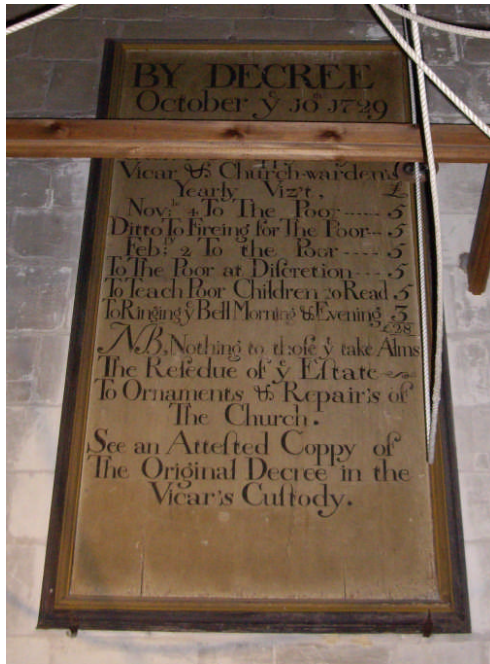 BY DECREE
October yͤ 10ᵗʰ 1729
Vicar & Church-warden's
Yearly Viz't. £
Nov: 4 To The Poor ----- 5
Ditto To Fireing for The Poor-- 5
Feb: 2 To the Poor ----- 5
To The Poor at Diſcretion ---- 5
To Teach Poor Children to Read . 5
To Ringing yͤ Bell Morning & Evening 3
£28
NB, Nothing to thoſe yͭ take Alms
The Reſedue of yͤ Eſtate
To Ornaments & Repair's of
The Church.
See an Atteſted Coppy of
The Original Decree in the
Vicar's Cuſtody.